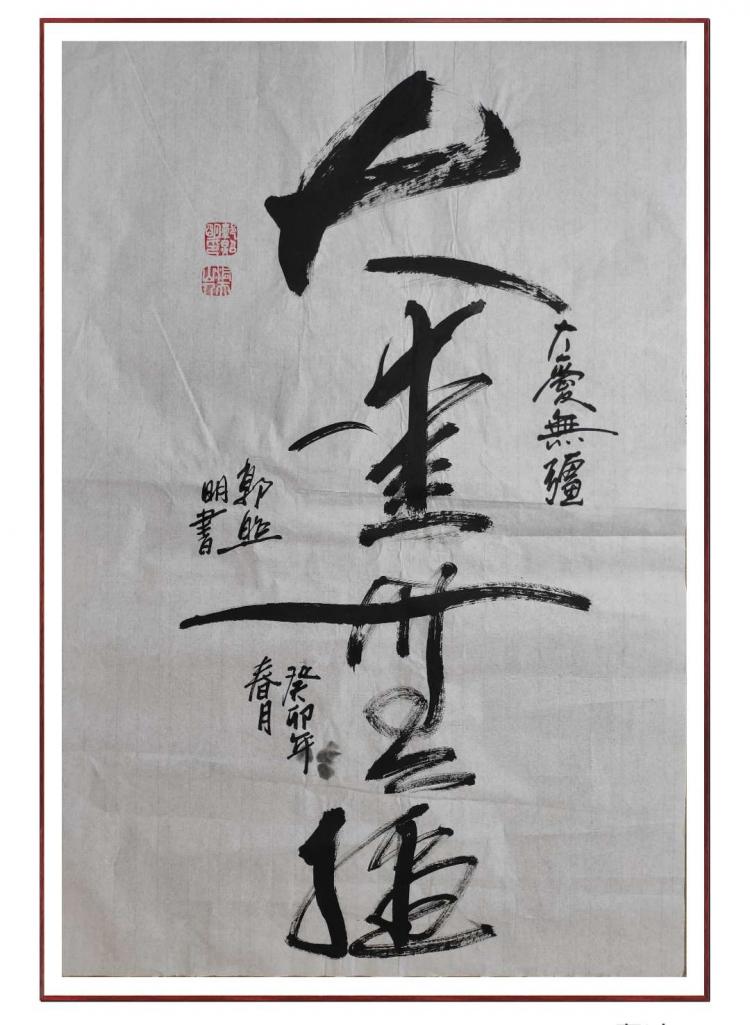 大愛無疆
大愛無疆
郭照
明書
癸卯年
春月